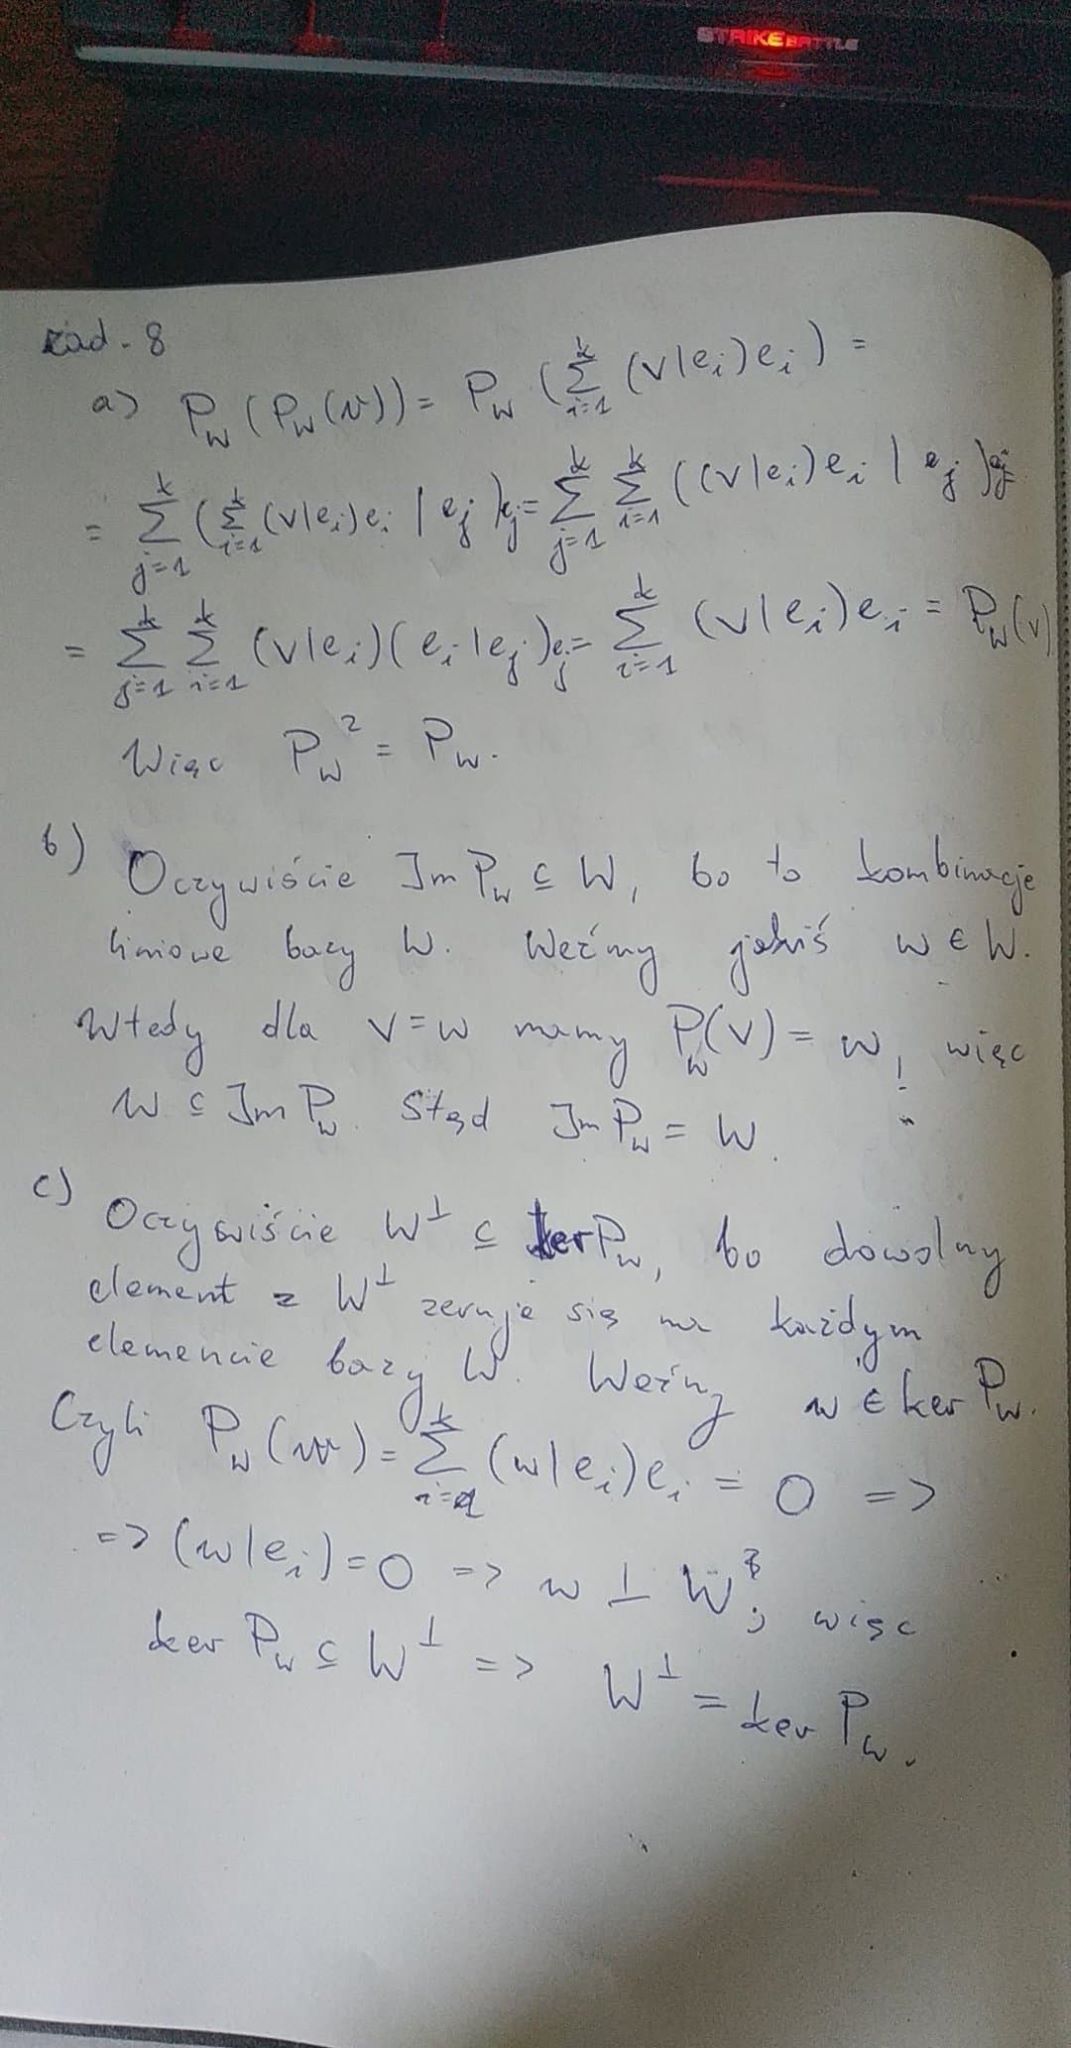 STRIKE BATTLE
zad. 8
a) P_W (P_W(v)) = P_W (∑_{i=1}^{k} (v|e_i)e_i) =
= ∑_{j=1}^{k} (∑_{i=1}^{k} (v|e_i)e_i | e_j)e_j = ∑_{j=1}^{k} ∑_{i=1}^{k} ((v|e_i)e_i | e_j)e_j =
= ∑_{j=1}^{k} ∑_{i=1}^{k} (v|e_i)(e_i|e_j)e_j = ∑_{i=1}^{k} (v|e_i)e_i = P_W(v)
Więc P_W² = P_W.
b) Oczywiście Im P_W ⊆ W, bo to kombinacje
liniowe bazy W. Weźmy jakiś w ∈ W.
Wtedy dla v = w mamy P_W(v) = w, więc
W ⊆ Im P_W. Stąd Im P_W = W.
c) Oczywiście W^⊥ ⊆ ker P_W, bo dowolny
element z W^⊥ zeruje się na każdym
elemencie bazy W. Weźmy w ∈ ker P_W.
Czyli P_W(w) = ∑_{i=1}^{k} (w|e_i)e_i = 0 =>
=> (w|e_i) = 0 => w ⊥ W, więc
ker P_W ⊆ W^⊥ => W^⊥ = ker P_W.